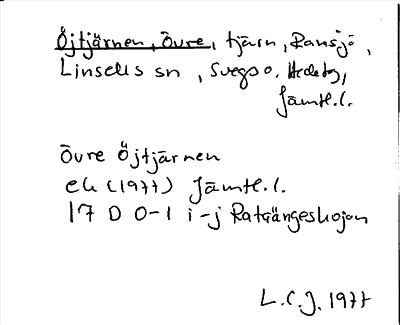 Öjtjärnen, Övre, tjärn, Ransjö,
Linsells sn, Svegs o. Hedebg,
Jämtl.l.
Övre Öjtjärnen
ek (1977) Jämtl.l.
17 D 0-1 i-j Rätängeskojan
L.C.J. 1977